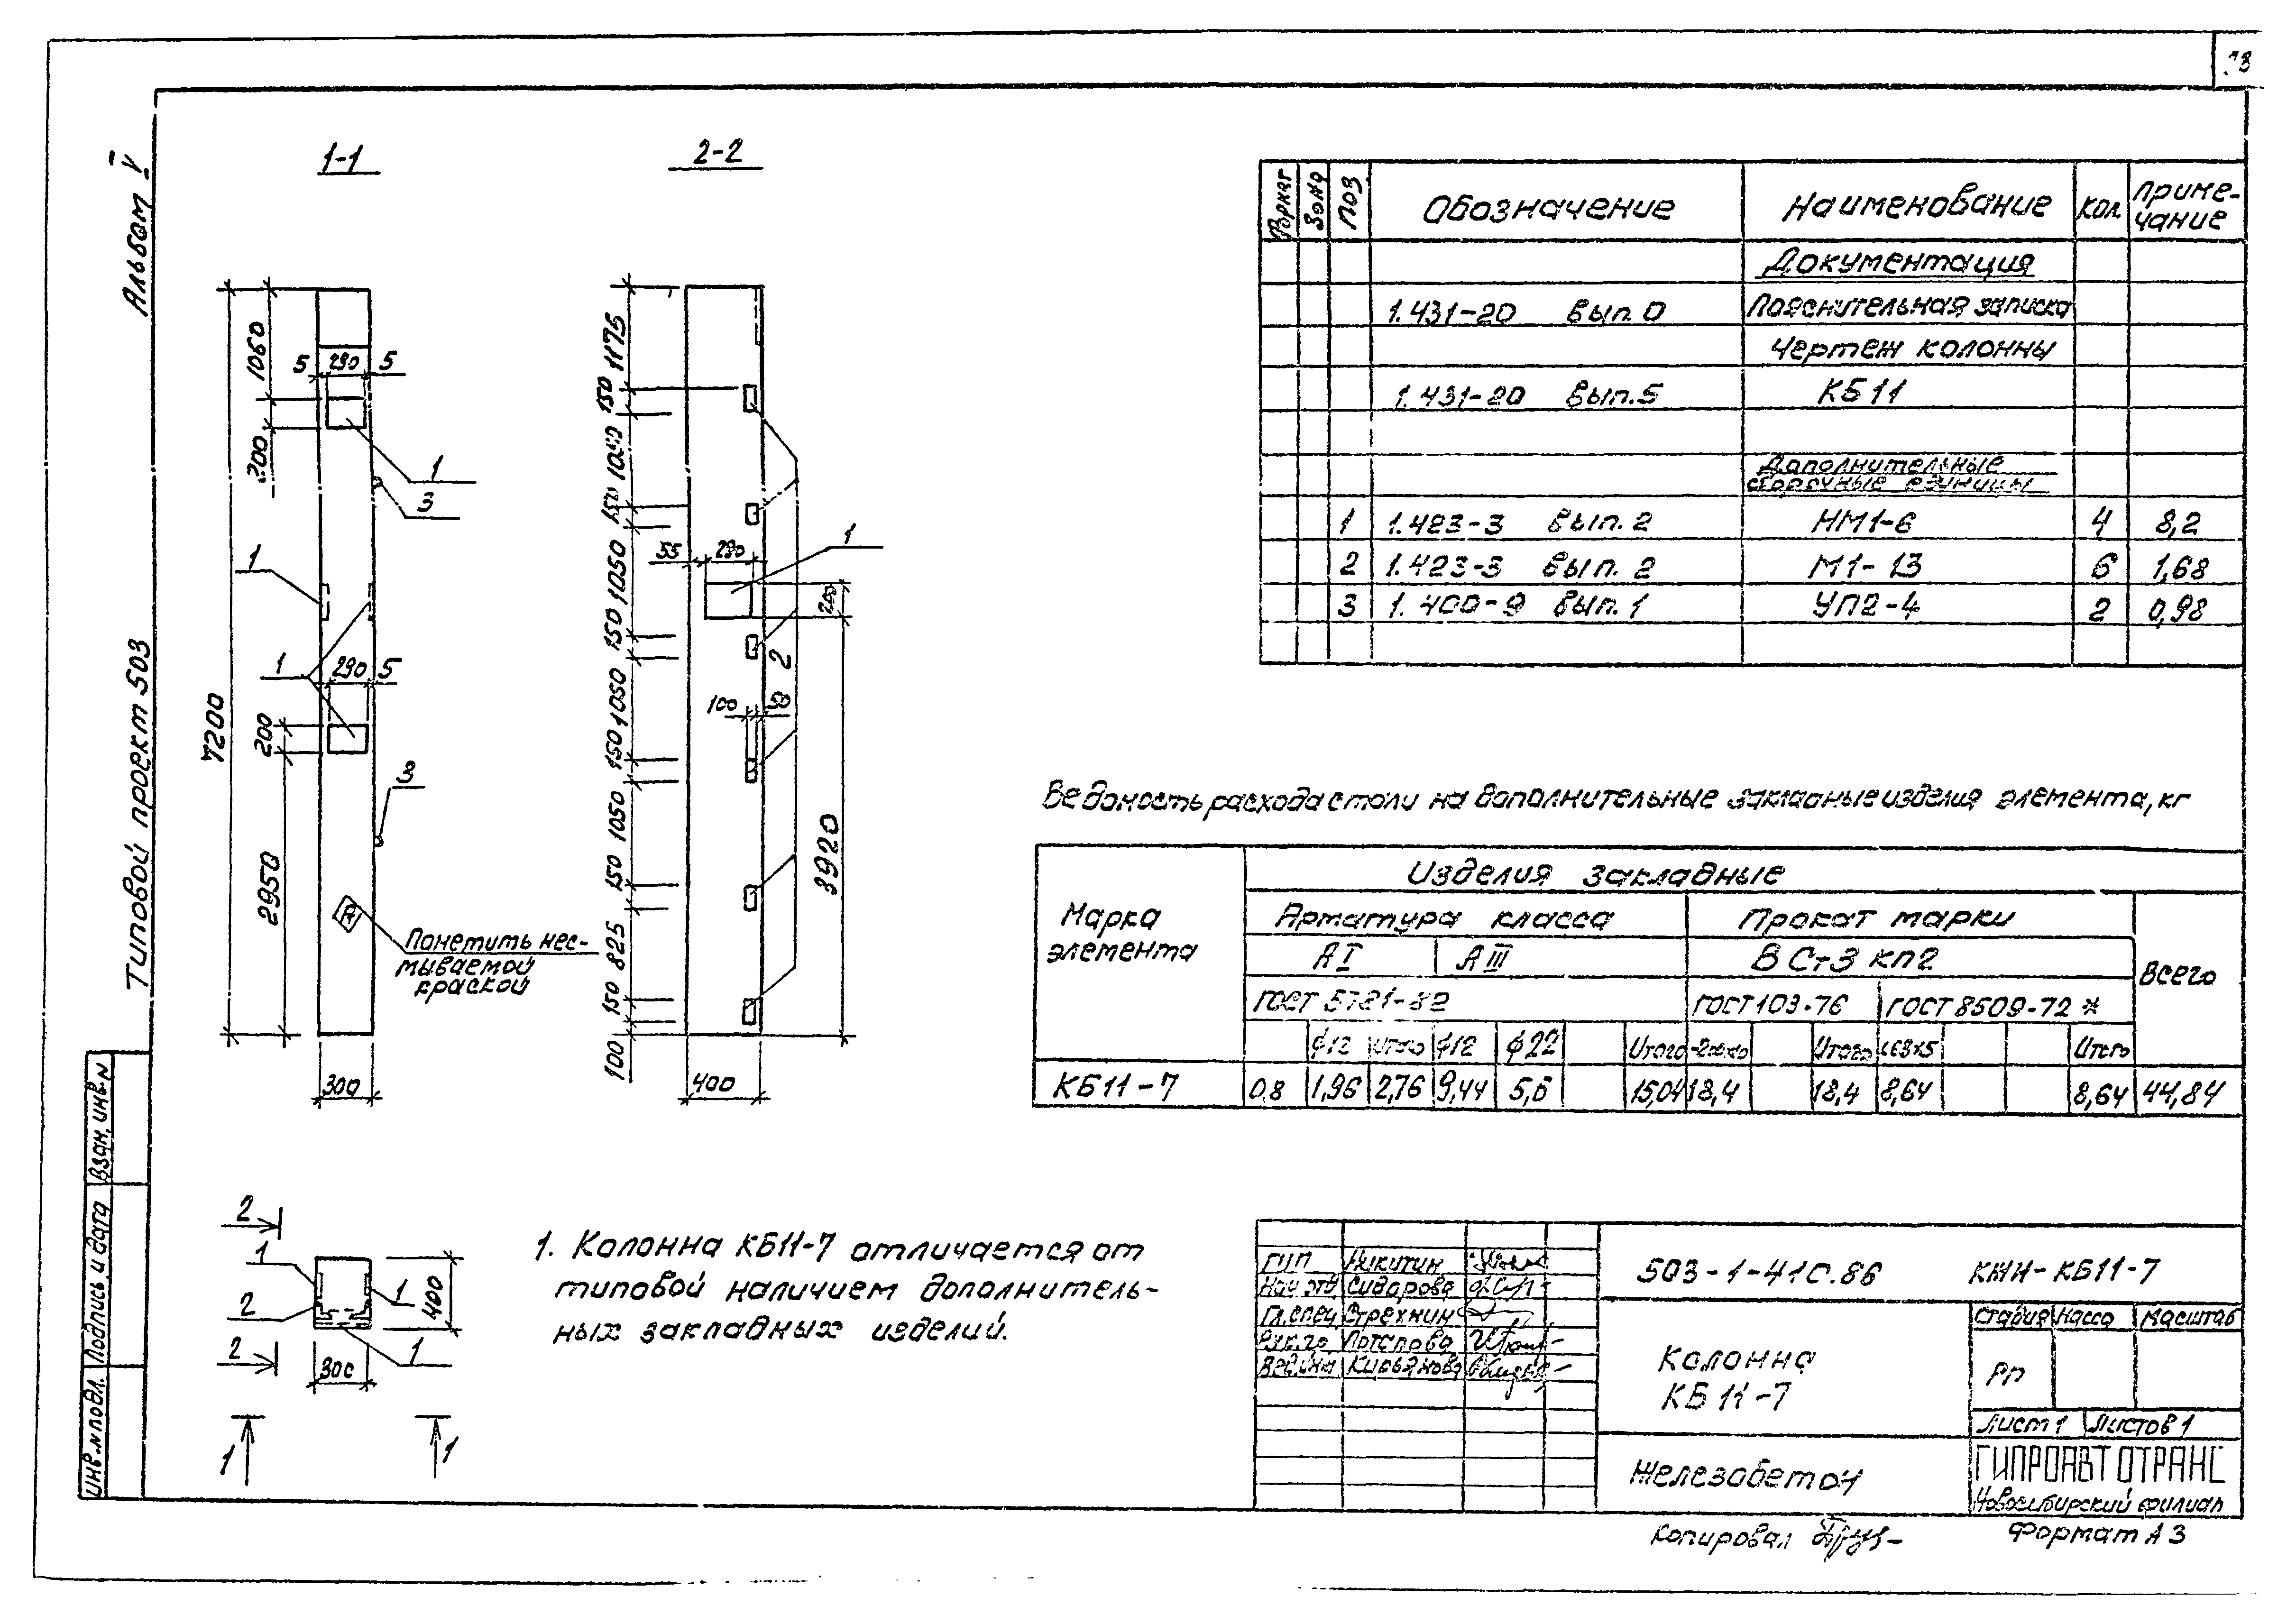 Альбом V
Типовой проект 503
1-1
2-2
7200
1060
200
5 290 5
1
3
1
1
290 5
200
2950
3
Пометить нес-
мываемой
краской
300
1175
150
1050
150
1050
150
1050
150
1050
150
825
150
100
55 290
1
200
2
100 50
3920
400
Формат
Зона
Поз.
Обозначение
Наименование
Кол.
Приме-
чание
Документация
1.431-20 Вып. 0 Пояснительная записка
Чертеж колонны
1.431-20 Вып. 5 КБ11
Дополнительные
сборочные единицы
1 1.423-3 Вып. 2 НМ1-6 4 8,2
2 1.423-3 Вып. 2 М1-13 6 1,68
3 1.400-9 Вып. 1 УП2-4 2 0,98
Ведомость расхода стали на дополнительные закладные изделия элемента, кг
Марка
элемента
Изделия закладные
Арматура класса
Прокат марки
Всего
А I А III
В Ст3 кп2
ГОСТ 5781-82
ГОСТ 103-76
ГОСТ 8509-72*
ф12 Итого ф12 ф22 Итого Итого Итого
КБ11-7 0,8 1,96 2,76 9,44 5,6 15,04 18,4 18,4 8,64 8,64 44,84
2
1
2
2
1
1
400
300
1
1
1. Колонна КБ11-7 отличается от
типовой наличием дополнитель-
ных закладных изделий.
Взам. инв. N
Подпись и дата
Инв. N подл.
ГИП Никитин
Нач. отд. Сидорова
Гл. спец. Стрехнин
Рук. гр. Потапова
Вед. инж. Кирьянова
503-1-41С.86 КЖИ-КБ11-7
Колонна
КБ11-7
Стадия Масса Масштаб
РП
Лист 1 Листов 1
Железобетон
ГИПРОАВТОТРАНС
Новосибирский филиал
Копировал
Формат А3